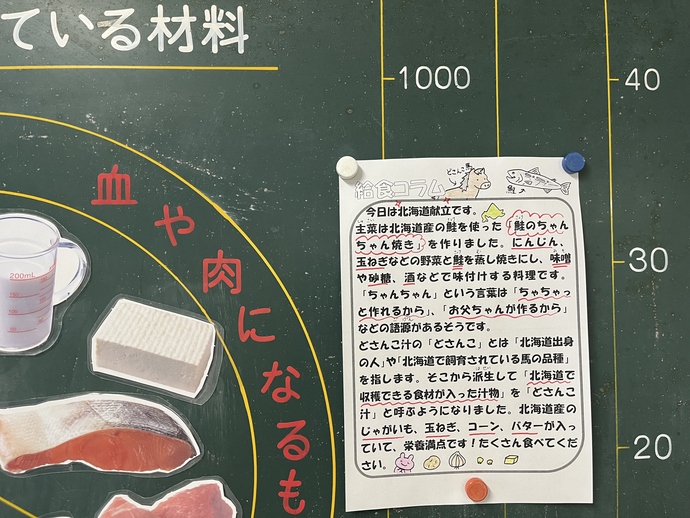 ている材料
1000
40
30
20
血や肉になるも
200mL
給食コラム
どさんこ馬
鮭
今日は北海道献立です。
主菜は北海道産の鮭を使った「鮭のちゃん
ちゃん焼き」を作りました。にんじん、
玉ねぎなどの野菜と鮭を蒸し焼きにし、味噌
や砂糖、酒などで味付けする料理です。
「ちゃんちゃん」という言葉は「ちゃちゃっ
と作れるから」、「お父ちゃんが作るから」
などの語源があるそうです。
どさんこ汁の「どさんこ」とは「北海道出身
の人」や「北海道で飼育されている馬の品種」
を指します。そこから派生して「北海道で
収穫できる食材が入った汁物」を「どさんこ
汁」と呼ぶようになりました。北海道産の
じゃがいも、玉ねぎ、コーン、バターが入っ
ていて、栄養満点です！たくさん食べてくだ
さい。